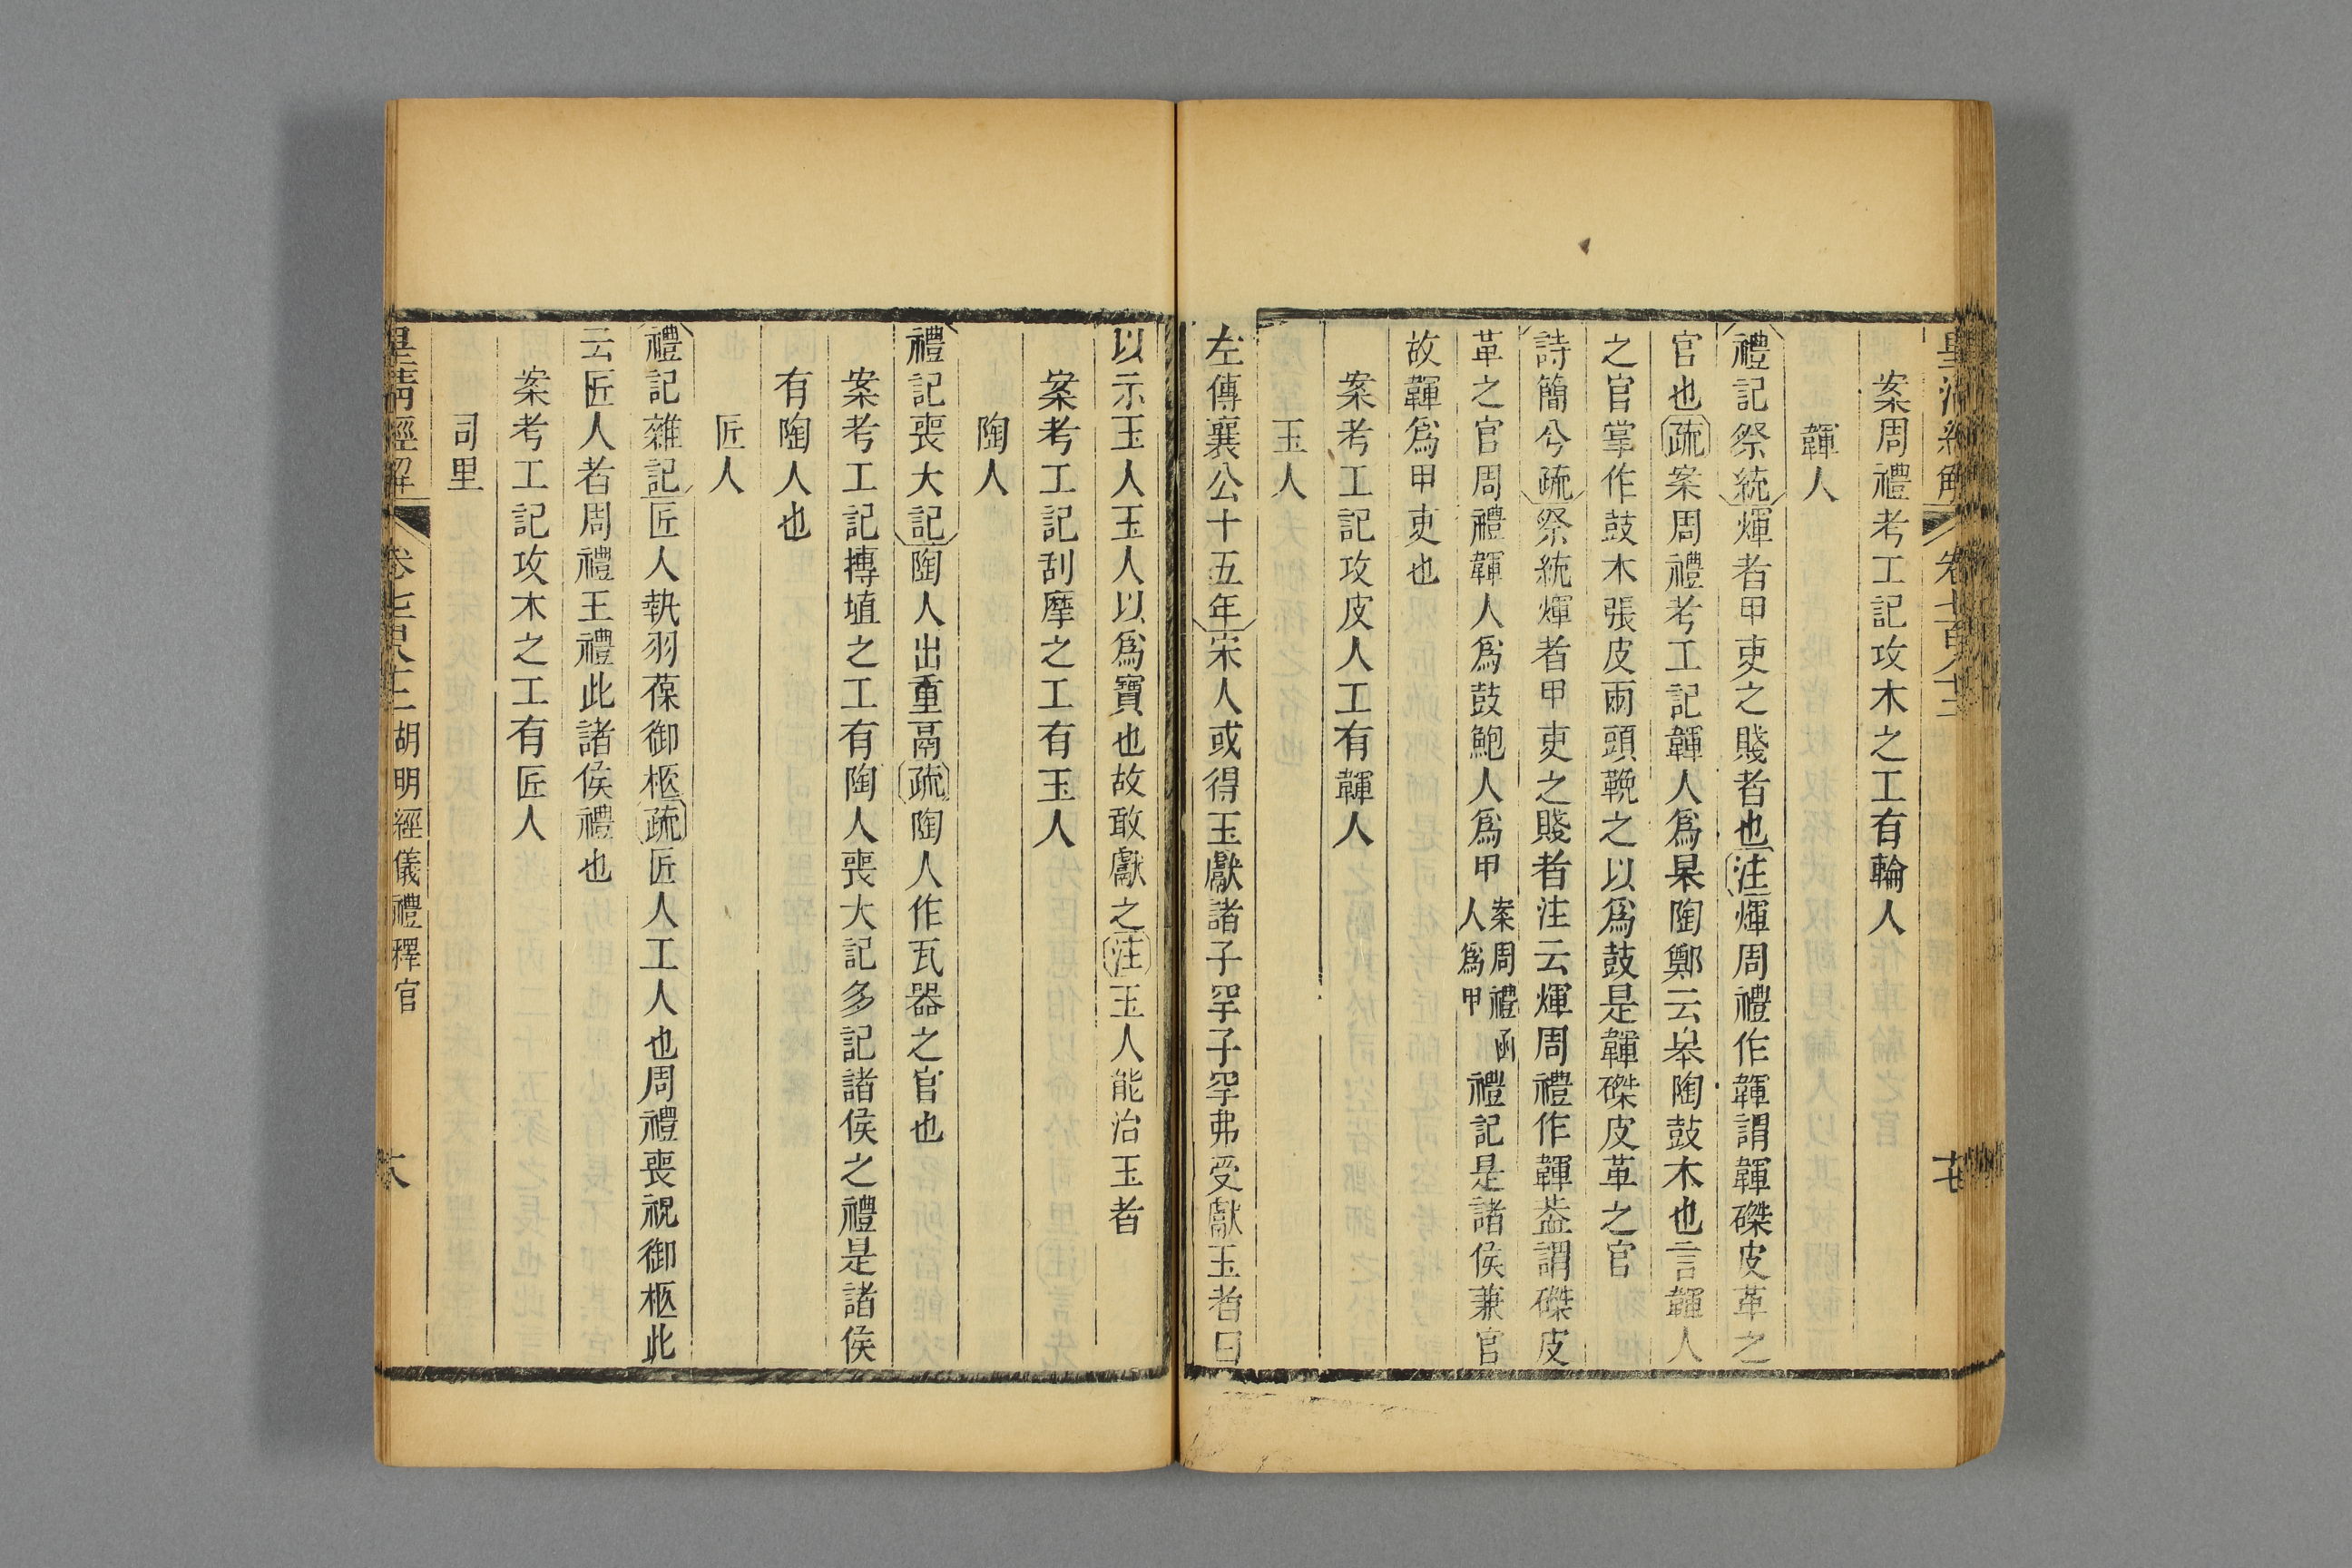 案周禮考工記攻木之工有輪人
韗人
禮記祭統煇者甲吏之賤者也注煇周禮作韗謂韗磔皮革之
官也疏案周禮考工記韗人爲皋陶鄭云皋陶鼓木也言韗人
之官掌作鼓木張皮兩頭鞔之以爲鼓是韗磔皮革之官
詩簡兮疏祭統煇者甲吏之賤者注云煇周禮作韗蓋謂磔皮
革之官周禮韗人爲鼓鮑人爲甲案周禮函人爲甲禮記是諸侯兼官
故韗爲甲吏也
案考工記攻皮人工有韗人
玉人
左傳襄公十五年宋人或得玉獻諸子罕子罕弗受獻玉者曰
以示玉人玉人以爲寶也故敢獻之注玉人能治玉者
案考工記刮摩之工有玉人
陶人
禮記喪大記陶人出重鬲疏陶人作瓦器之官也
案考工記摶埴之工有陶人喪大記多記諸侯之禮是諸侯
有陶人也
匠人
禮記雜記匠人執羽葆御柩疏匠人工人也周禮喪祝御柩此
云匠人者周禮王禮此諸侯禮也
案考工記攻木之工有匠人
司里
皇清經解 卷七百八十三 胡明經儀禮釋官